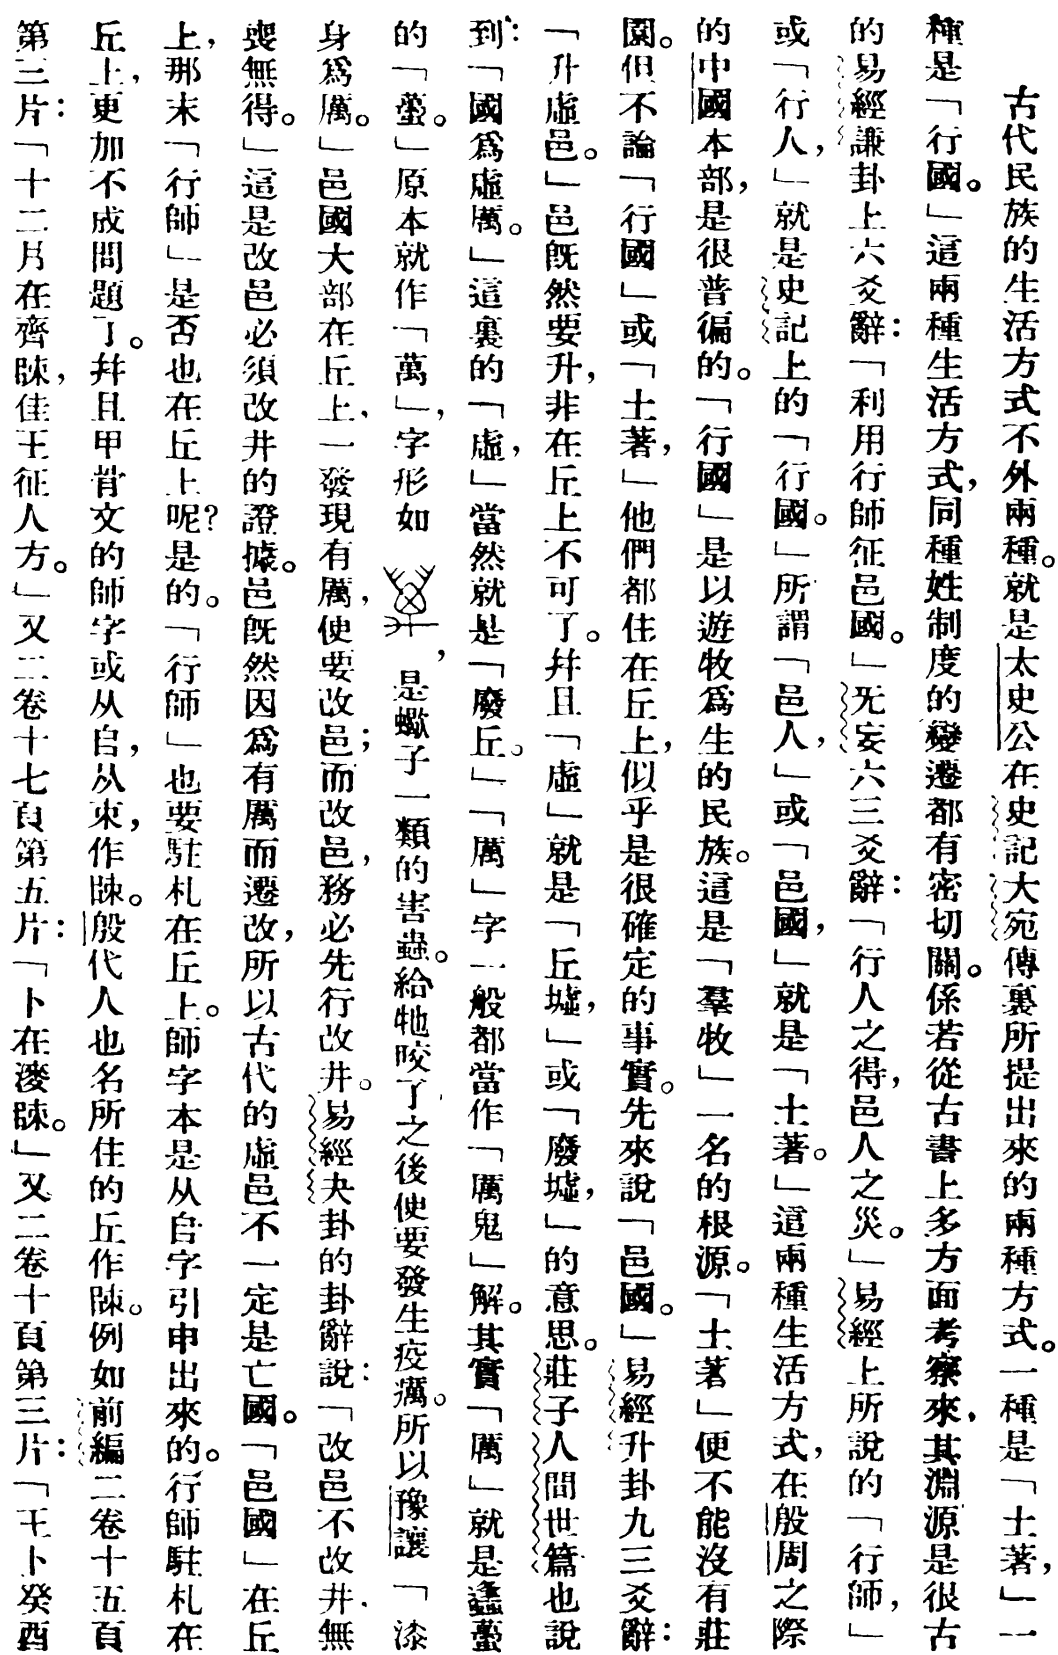 古代民族的生活方式不外兩種。就是太史公在史記大宛傳裏所提出來的兩種方式。一種是「土著，」一
種是「行國。」這兩種生活方式，同種姓制度的變遷都有密切關。係若從古書上多方面考察來，其淵源是很古
的易經謙卦上六爻辭：「利用行師征邑國。」无妄六三爻辭：「行人之得，邑人之災。」易經上所說的「行師，」
或「行人，」就是史記上的「行國。」所謂「邑人，」或「邑國，」就是「土著。」這兩種生活方式，在殷周之際
的中國本部，是很普徧的。「行國」是以遊牧爲生的民族。這是「羣牧」一名的根源。「土著」便不能沒有莊
園。但不論「行國」或「土著，」他們都住在丘上，似乎是很確定的事實。先來說「邑國。」易經升卦九三爻辭：
「升虛邑。」邑旣然要升，非在丘上不可了。幷且「虛」就是「丘墟，」或「廢墟，」的意思。莊子人間世篇也說
到：「國爲虛厲。」這裏的「虛，」當然就是「廢丘。」「厲」字一般都當作「厲鬼」解。其實「厲」就是蠭蠆
的「蠆。」原本就作「萬」，字形如，是蠍子一類的害蟲。給牠咬了之後便要發生疫癘。所以豫讓「漆
身爲厲。」邑國大部在丘上，一發現有厲，便要改邑；而改邑，務必先行改井。易經夬卦的卦辭說：「改邑不改井，無
喪無得。」這是改邑必須改井的證據。邑旣然因爲有厲而遷改，所以古代的虛邑不一定是亡國。「邑國」在丘
上，那末「行師」是否也在丘上呢？是的。「行師」也要駐札在丘上。師字本是从𠂤字引申出來的。行師駐札在
丘上，更加不成問題了。幷且甲骨文的師字或从𠂤，从朿，作𠂤朿。殷代人也名所住的丘作𠂤朿。例如前編二卷十五頁
第三片：「十二月在齊𠂤朿，隹王征人方。」又二卷十七頁第五片：「卜在淩𠂤朿。」又二卷十頁第三片：「王卜癸酉